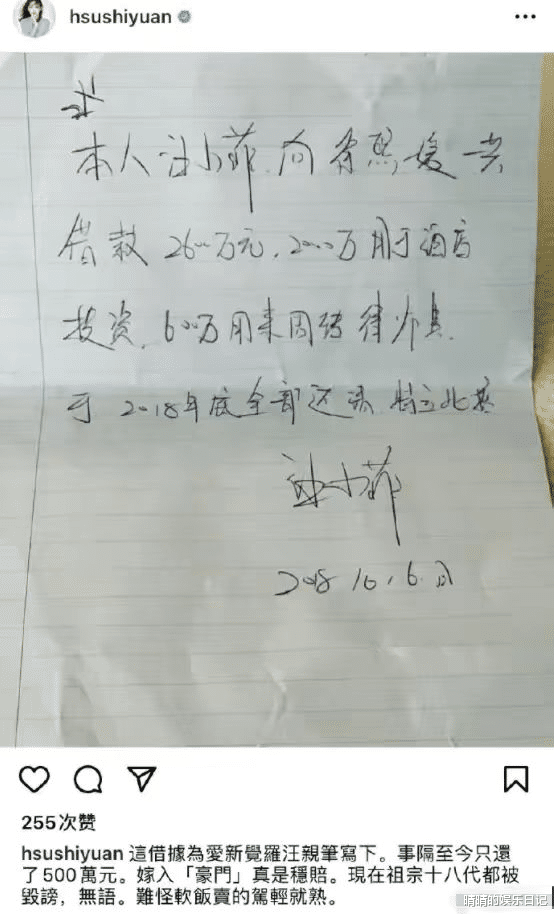 hsushiyuan
本人汪小菲,向徐熙媛共
借款2600万元,2000万用于酒店
投资,600万用来周转
于2018年底全部还清 特立此据
汪小菲
2018.10.6.日
255次赞
hsushiyuan 這借據為愛新覺羅汪親筆寫下。事隔至今只還
了500萬元。嫁入「豪門」真是穩賠。現在祖宗十八代都被
毀謗，無語。難怪軟飯賣的駕輕就熟。
晴晴的娱乐日记